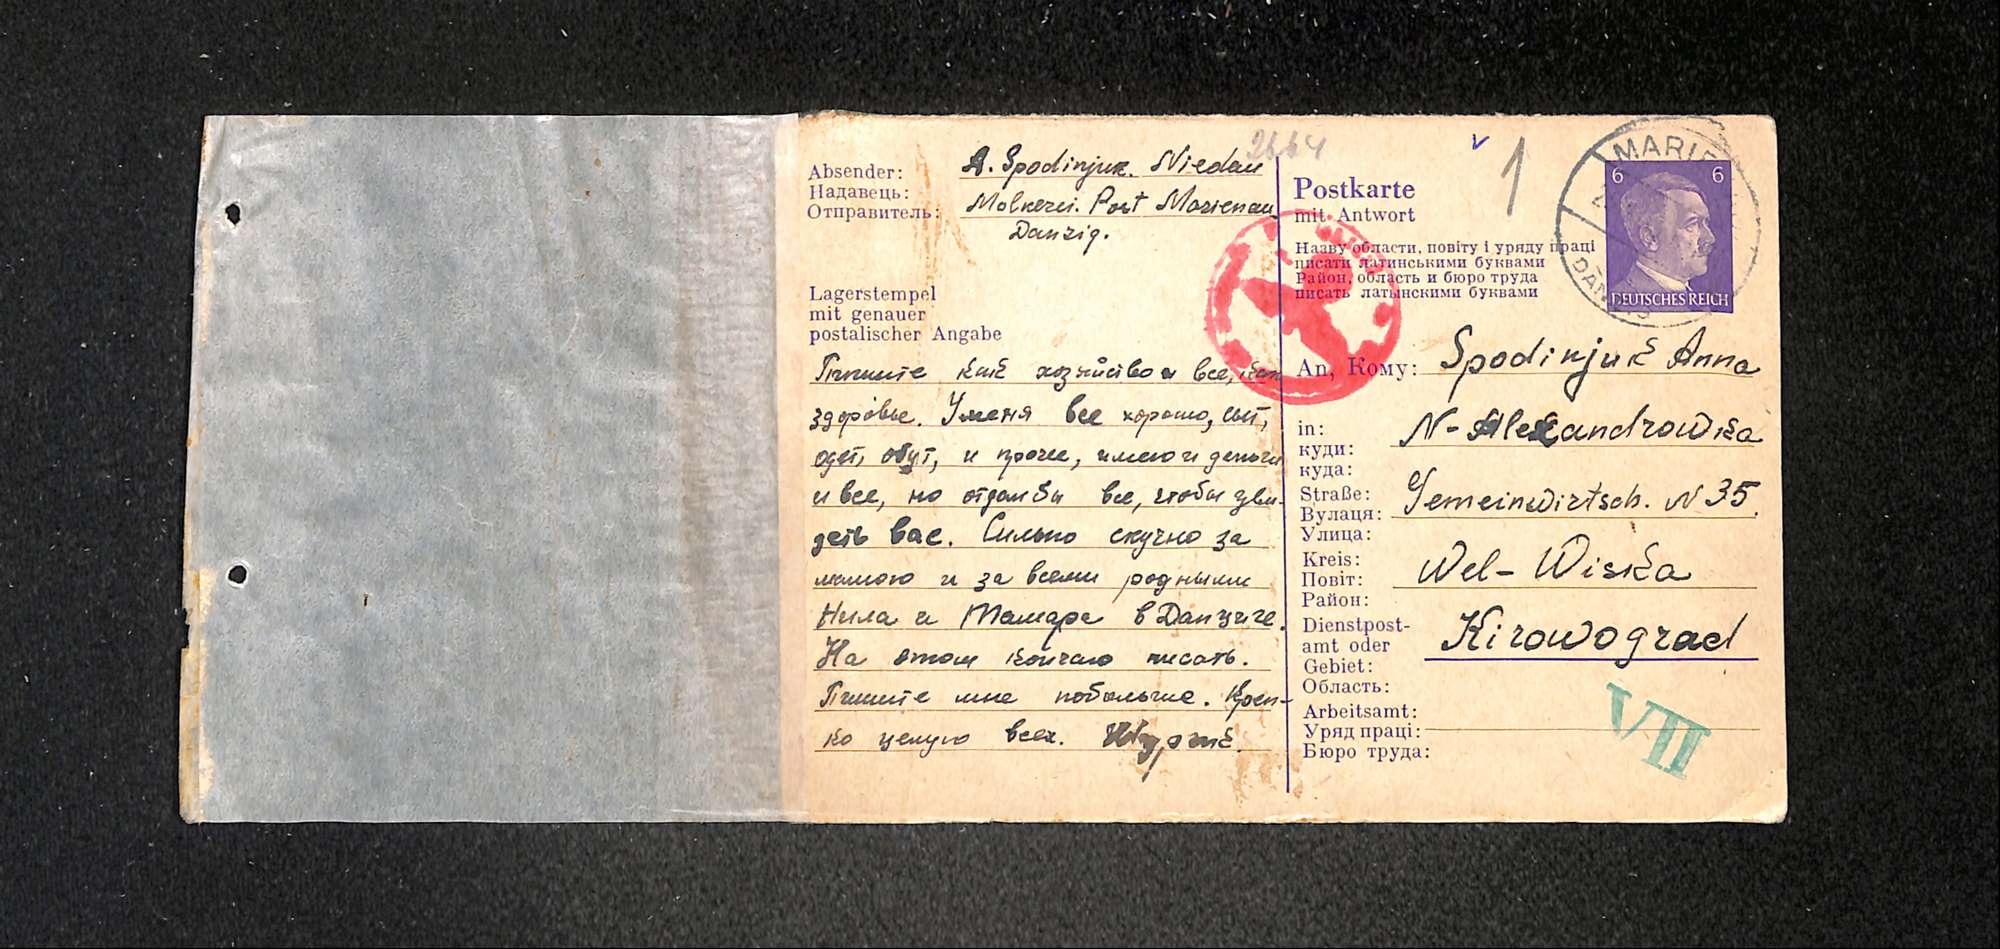 2664
Absender: A. Spodinjuk. Niedau
Надавець:
Отправитель: Molkerei. Post Marienau
Danzig.
Lagerstempel
mit genauer
postalischer Angabe
Пишите как хозяйство и все, как
здоровье. У меня все хорошо, сыт,
одет, обут, и проче, имею и деньги
и все, но отдал бы все, чтобы уви-
деть вас. Сильно скучно за
мамою и за всеми родными
Нила и Тамара в Данциге.
На этом кончаю писать.
Пишите мне побольше. Креп-
ко целую всех.
v 1
Postkarte
mit Antwort
Назву области, повіту і уряду праці
писати латинськими буквами
Район, область и бюро труда
писать латынскими буквами
MARIE
DAN
6 6
DEUTSCHES REICH
An, Кому: Spodinjuk Anna
in: N-Alexandrowka
куди:
куда:
Straße: Gemeinwirtsch. N 35.
Вулаця:
Улица:
Kreis: Wel-Wiska
Повіт:
Район:
Dienstpost-
amt oder Kirowograd
Gebiet:
Область:
Arbeitsamt:
Уряд праці:
Бюро труда:
VII